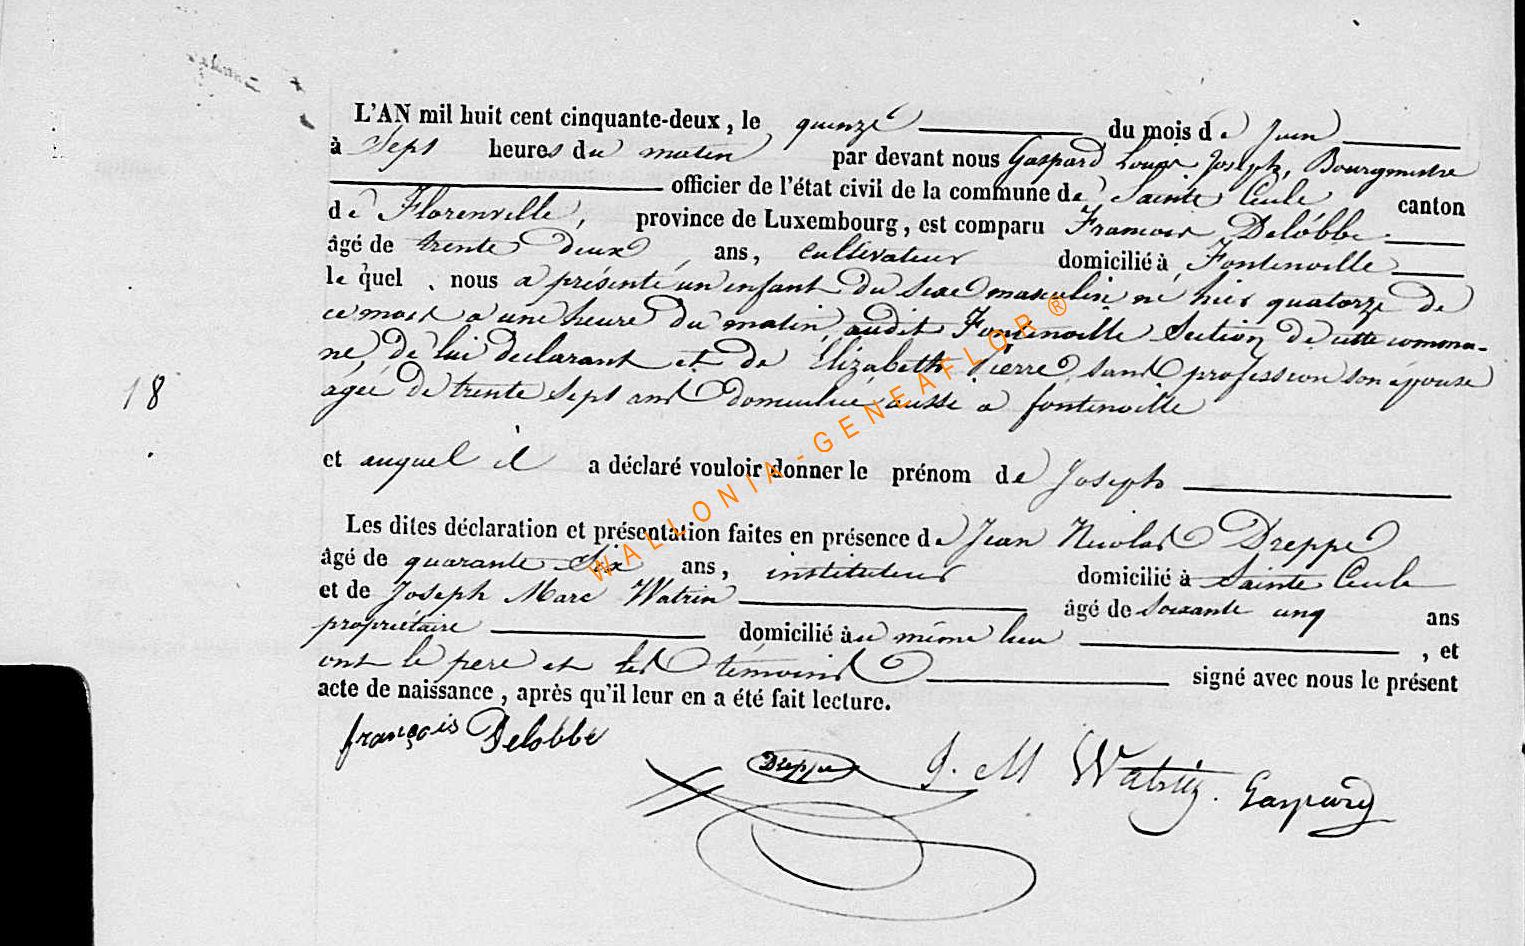 L'AN mil huit cent cinquante-deux, le quinze du mois de Juin
à Sept heures du matin par devant nous Gaspard Louis Joseph, Bourgmestre
officier de l'état civil de la commune de Sainte Cécile canton
de Florenville, province de Luxembourg, est comparu François Delobbe
âgé de trente deux ans, cultivateur domicilié à Fontenoille
le quel nous a présenté un enfant du sexe masculin né hier quatorze de
ce mois a une heure du matin, audit Fontenoille Section de cette commu-
ne, de lui declarant et de Elizabeth Pierre, sans profession son épouse
agée de trente Sept ans domiciliée aussi a fontenoille
18
et auquel il a déclaré vouloir donner le prénom de Joseph
Les dites déclaration et présentation faites en présence de Jean Nicolas Dreppe
âgé de quarante Six ans, instituteur domicilié à Sainte Cécile
et de Joseph Marc Watrin âgé de soixante cinq ans
propriétaire domicilié au même lieu , et
ont le pere et les témoins signé avec nous le présent
acte de naissance, après qu'il leur en a été fait lecture.
françois Delobbe
Dreppe J. M Watrin. Gaspard
WALLONIA-GENEAFLOR ®